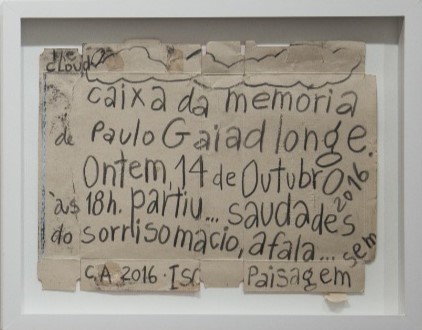 the
cloud
caixa da memoria
de Paulo Gaiad longe.
Ontem, 14 de Outubro 2016
às 18h. partiu... saudades
do sorriso macio, a fala... sem
C.A 2016 · Iso Paisagem